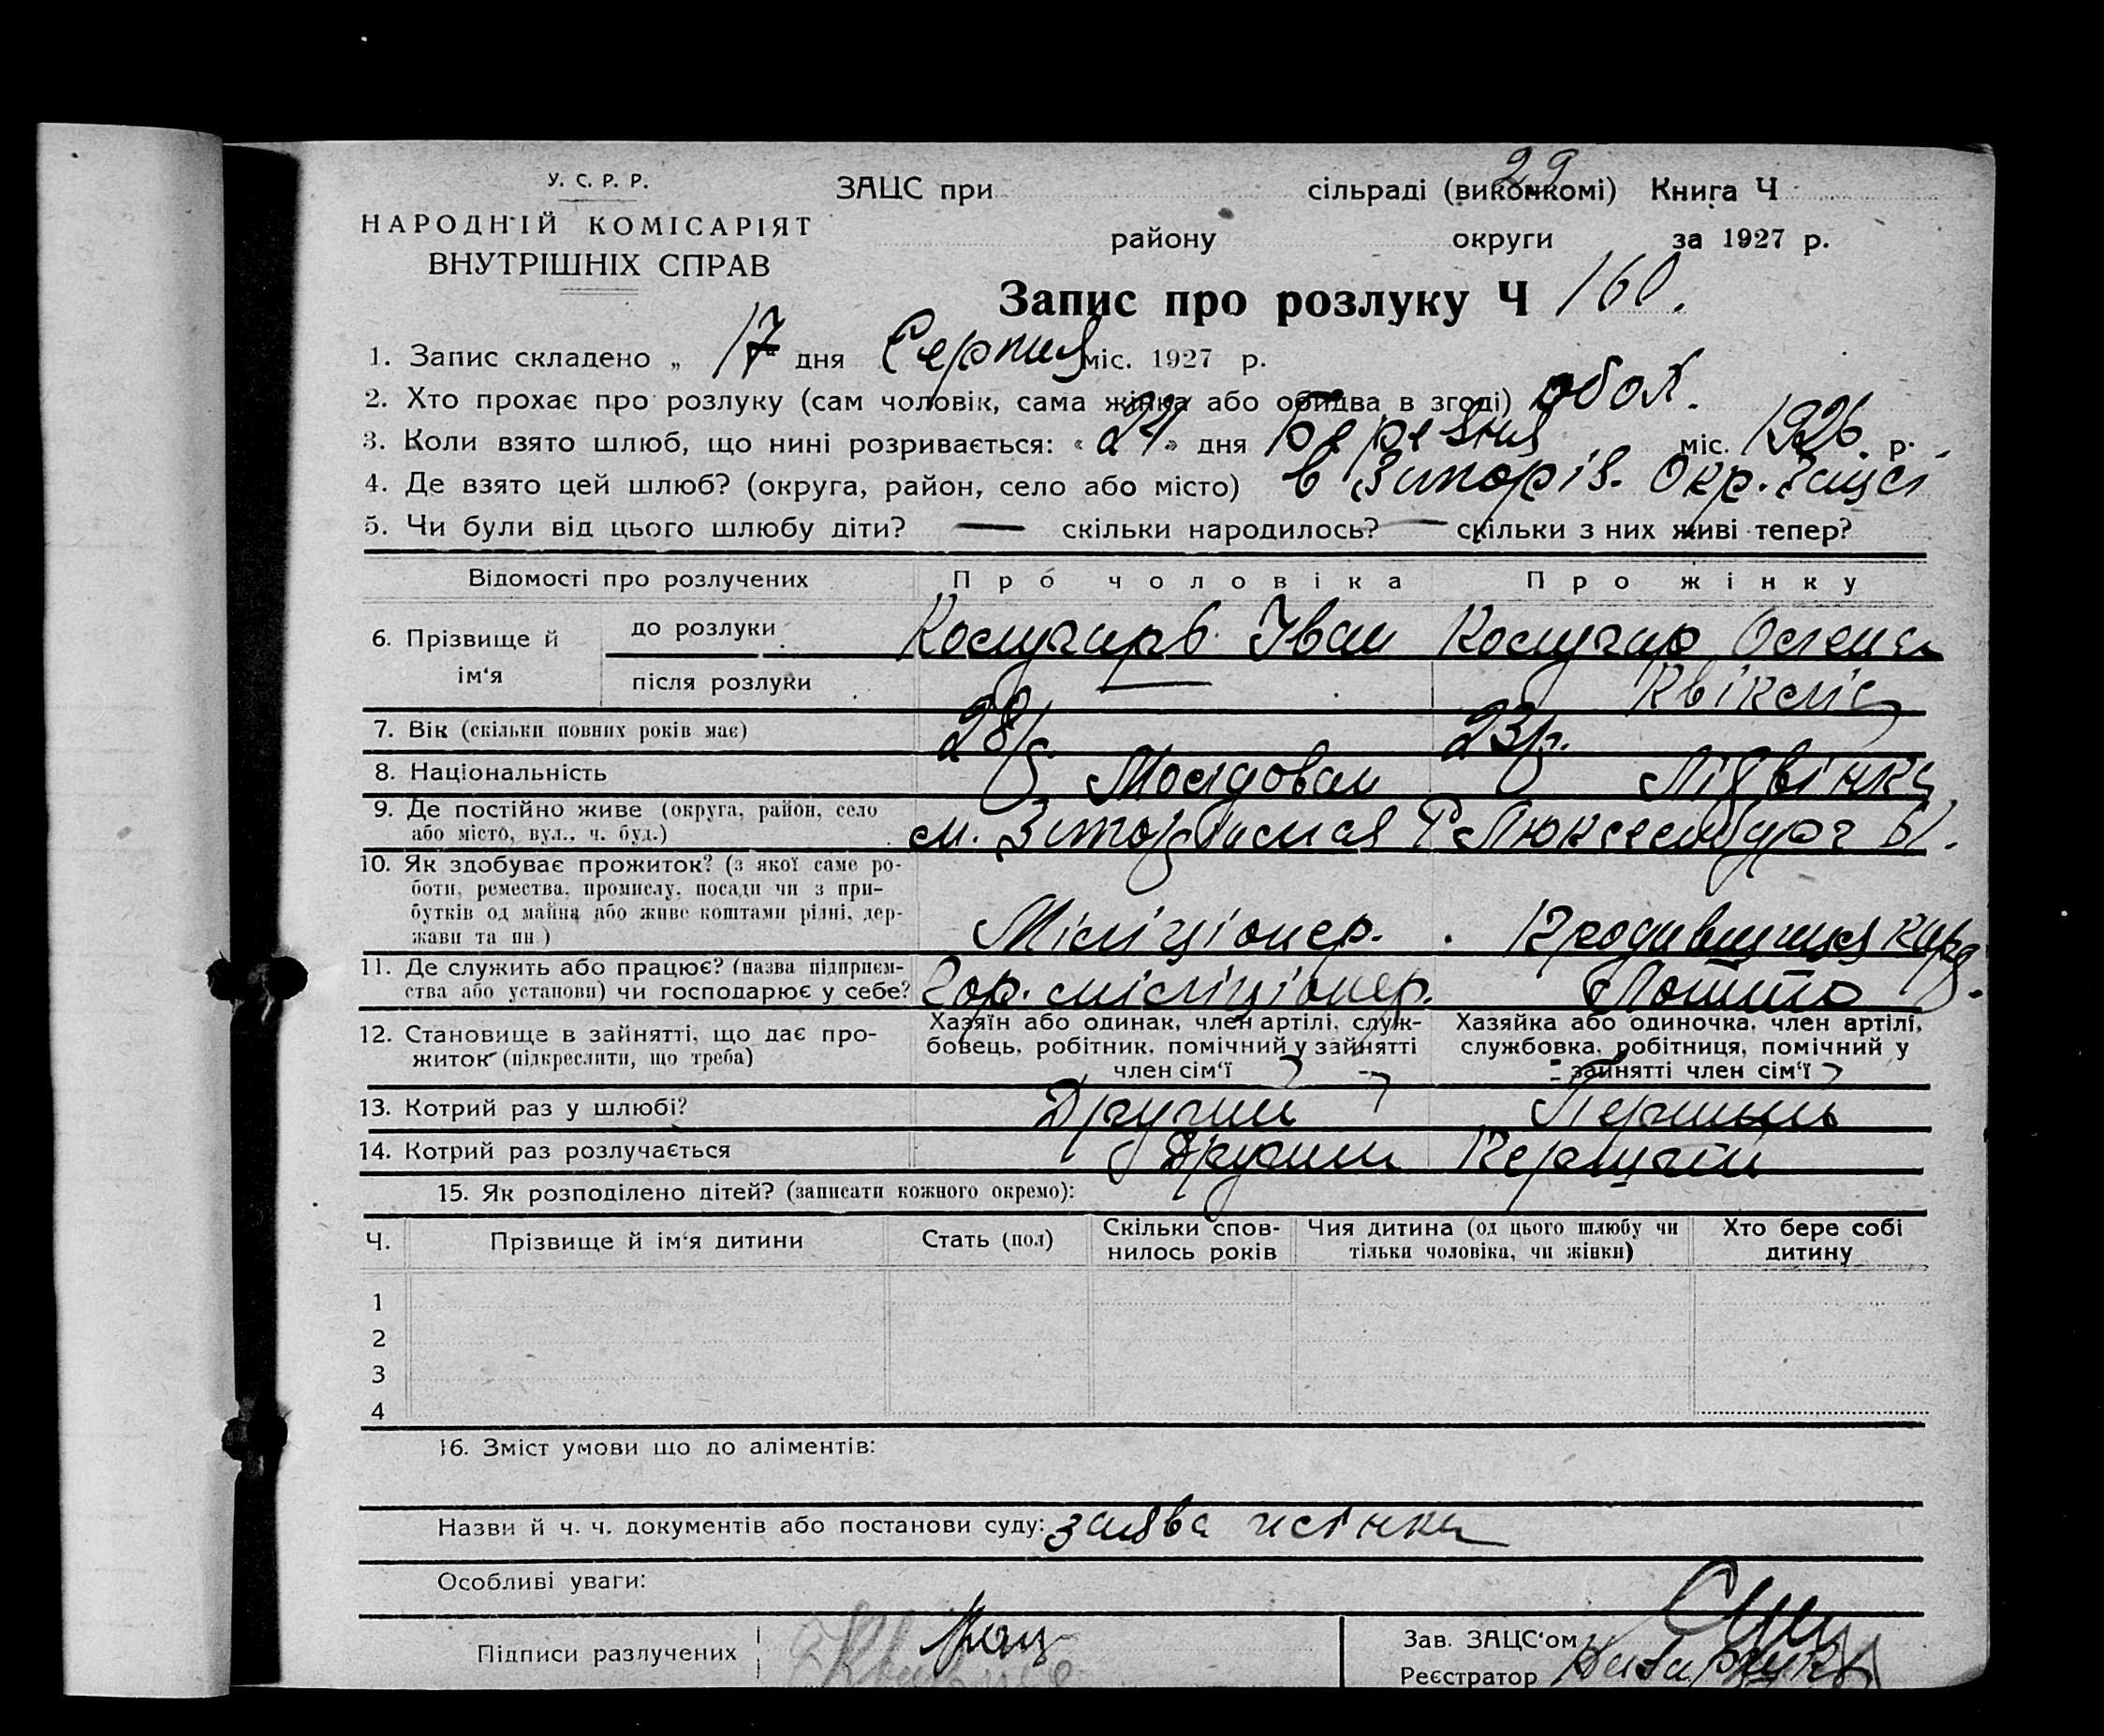 29
У. С. Р. Р.
ЗАЦС при сільраді (виконкомі) Книга Ч
НАРОДНІЙ КОМІСАРІЯТ
ВНУТРІШНІХ СПРАВ
району округи за 1927 р.
Запис про розлуку Ч 160.
1. Запис складено „ 17 дня Серпня міс. 1927 р.
2. Хто прохає про розлуку (сам чоловік, сама жінка або обидва в згоді) обоє.
3. Коли взято шлюб, що нині розривається: « 24 » дня Березня міс. 1926 р.
4. Де взято цей шлюб? (округа, район, село або місто) в Зіторів. Окр. Зацсі
5. Чи були від цього шлюбу діти? — скільки народилось? — скільки з них живі тепер?
Відомості про розлучених Про чоловіка Про жінку
6. Прізвище й ім‘я до розлуки Іван
після розлуки —
7. Вік (скільки повних років має) 28р. 23р.
8. Національність Молдован
9. Де постійно живе (округа, район, село
або місто, вул., ч. буд.) м. Р Люксембург 61.
10. Як здобуває прожиток? (з якої саме ро-
боти, ремества, промислу, посади чи з при-
бутків од майна або живе коштами рідні, дер-
жави та ин.) Міліціонер.
11. Де служить або працює? (назва підприєм-
ства або установи) чи господарює у себе? Гор. міліціонер.
12. Становище в зайнятті, що дає про-
житок (підкреслити, що треба)
Хазяїн або одинак, член артілі, служ-
бовець, робітник, помічний у зайнятті
член сім‘ї
Хазяйка або одиночка, член артілі,
службовка, робітниця, помічний у
зайнятті член сім‘ї
13. Котрий раз у шлюбі? Другий Перший
14. Котрий раз розлучається Другий Перший
15. Як розподілено дітей? (записати кожного окремо):
Ч. Прізвище й ім‘я дитини Стать (пол) Скільки спов-
нилось років Чия дитина (од цього шлюбу чи
тільки чоловіка, чи жінки) Хто бере собі
дитину
1
2
3
4
16. Зміст умови що до аліментів:
Назви й ч. ч. документів або постанови суду: заява
Особливі уваги:
Підписи разлучених
Зав. ЗАЦС‘ом
Реєстратор